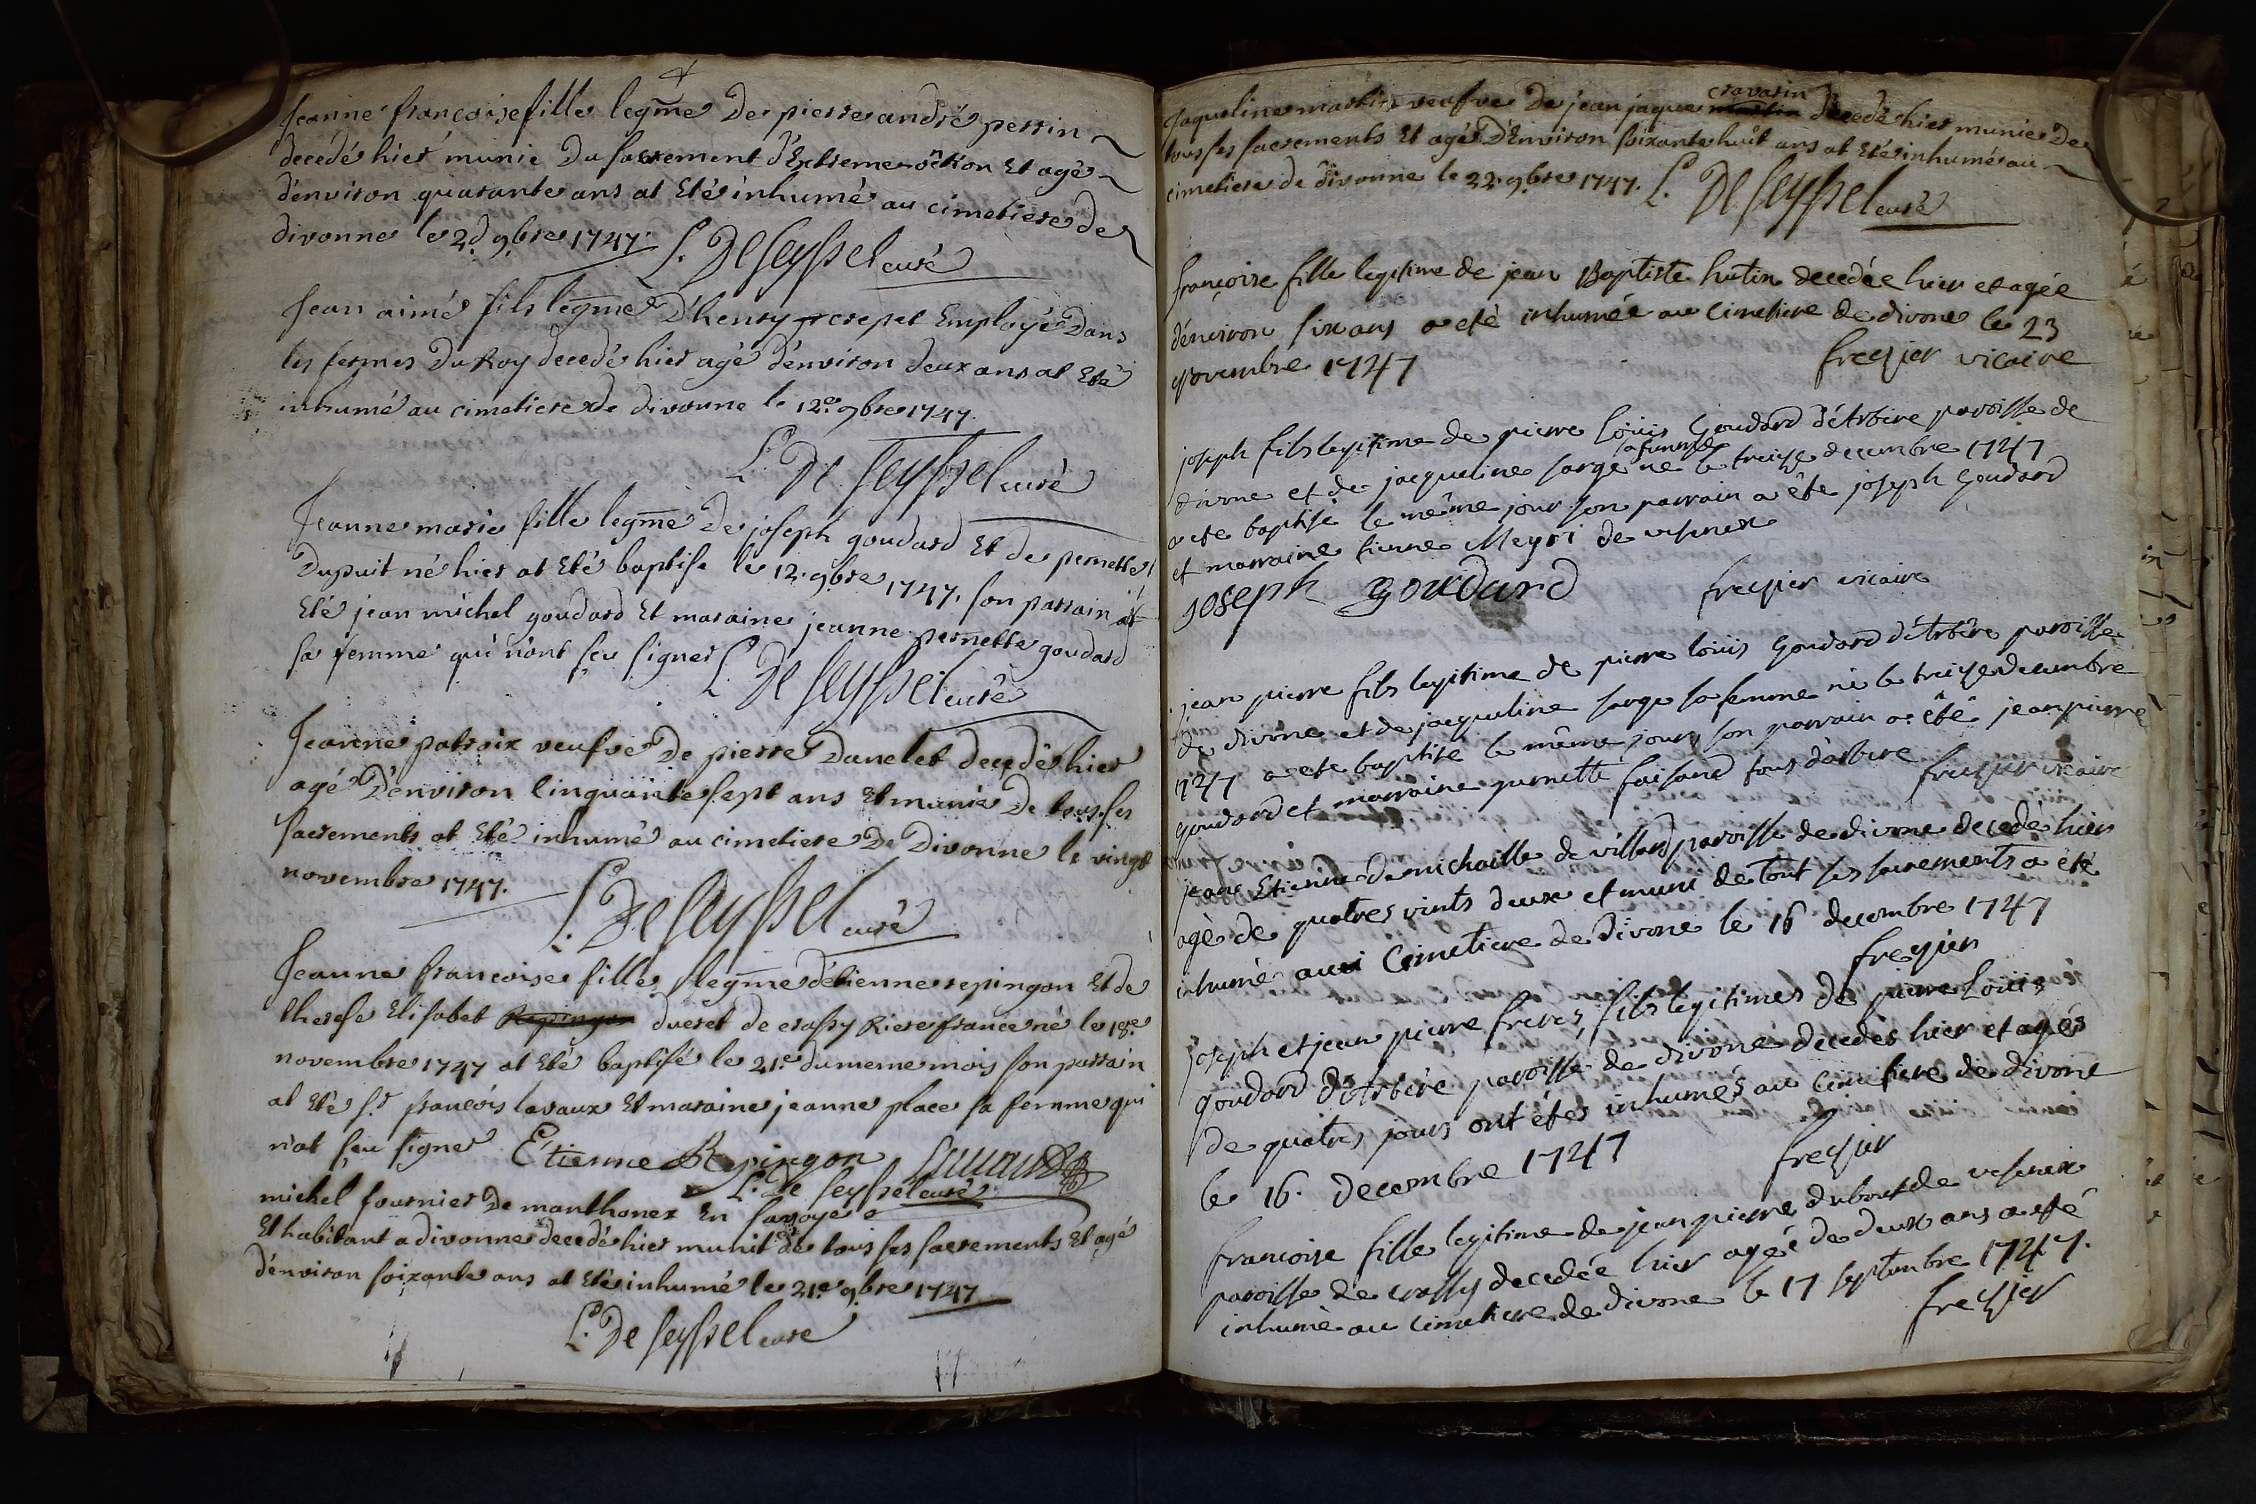 Jeanne françoise fille legme De pierre andré perrin
decedé hier munie Du sacrement d'Extreme onction Et agé
d'environ quarante ans at Eté inhumé au cimetiere de
divonne le 2d 9bre 1747. L. De Seyssel curé
Jean aimé fils legme D'henry crepet Employé Dans
les fermes Du Roy decedé hier agé d'environ deux ans at Eté
inhumé au cimetiere de divonne le 12e 9bre 1747.
L. De Seyssel curé
Jeanne marie fille legme De joseph goudard Et de pernette
Dupuit né hier at Eté baptisé le 12. 9bre 1747. son parrain at
Eté jean michel goudard Et maraine jeanne pernette goudard
sa femme qui n'ont sçu signer L. De Seyssel curé
Jeanne patroix veufve De pierre Danelet decedé hier
agé D'environ cinquante sept ans Et munie De tous ses
sacrements at Eté inhumé au cimetiere De Divonne le vingt
novembre 1747. L. De Seyssel curé
Jeanne françoise fille legme d'étienne repingon Et de
therese Elisabet Repingon ducret de crassy Riere france né le 19e
novembre 1747 at Eté baptisé le 21e du meme mois son parrain
at Eté sr françois lavaux Et maraine jeanne place sa femme qui
n'at sçu signer Etienne Repingon
L. De Seyssel curé
michel fournier De manthonex En Savoye
Et habitant a divonne decedé hier munit de tous ses sacrements Et agé
d'environ soixante ans at Eté inhumé le 21e 9bre 1747
L. De Seyssel curé
Jaqueline martin veufve De jean jaque cravasin decedé hier munie De
tous ses sacrements Et agé D'Environ soixante huit ans at Eté inhumé au
cimetiere de divonne le 22. 9bre 1747. L. De Seyssel curé
françoise fille legitime de jean Baptiste hutin decedée hier et agée
d'environ six ans a eté inhumée au cimetiere de divone le 23
novembre 1747 frezier vicaire
joseph fils legitime de pierre Loüis Goudard d'Arbere paroisse de
divone et de jacqueline sarge sa femme né le treize decembre 1747
a eté baptisé le même jour son parrain a été joseph Goudard
et marraine tienne Meyri de vesenex
joseph goudard frezier vicaire
jean pierre fils legitime de pierre loüis Goudard d'Arbere paroisse
de divone et de jacqueline sarge sa femme né le treize decembre
1747 a eté baptisé le même jour, son parrain a été jean pierre
goudard et marraine pernette faisand tous d'arbere frezier vicaire
jean Etienne de michaille de villard paroisse de divone decedé hier
agé de quatres vints deux et muni de tout ses sacrements a été
inhumé aux Cimetiere de Divone le 16 decembre 1747
frezier
joseph et jean pierre freres, fils legitimes de pierre Loüis
goudard D'Arbere paroisse de divone decedés hier et agés
de quatres jours ont étés inhumés au cimetiere de divone
le 16. Decembre 1747 frezier
françoise fille legitime de jean pierre dubout de vesenex
paroisse de crassy decedée hier agée de deux ans a eté
inhumé au cimetiere de divone le 17 septembre 1747.
frezier